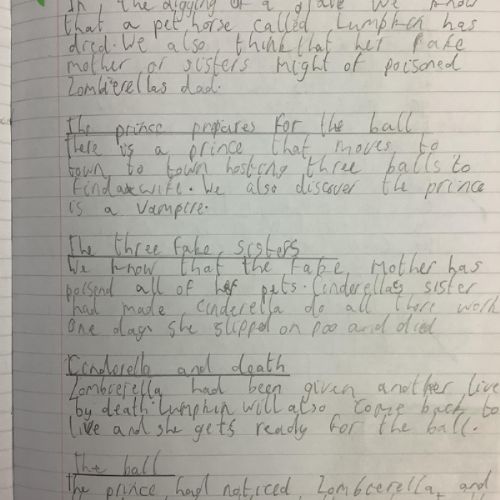 In, the digging of a grave we know
that a pet, horse called Lumpkin has
died. We also, think that her fake
mother or sisters might of poisoned
Zombierellas dad.
The prince prepares for the ball
there is a prince that moves to
town to town hosting three balls to
find a wife. We also discover the prince
is a vampire.
The three fake, sisters
We know that the fake, mother has
poisend all of her pets. Cinderellas sister
had made, cinderella do all there work
One day she slipped on poo and died
Cinderella and death
Zombierella had been given another live
by death. Lumpkin will also come back to
live and she gets ready for the ball.
The ball
The prince, had noticed, Zombierella, and